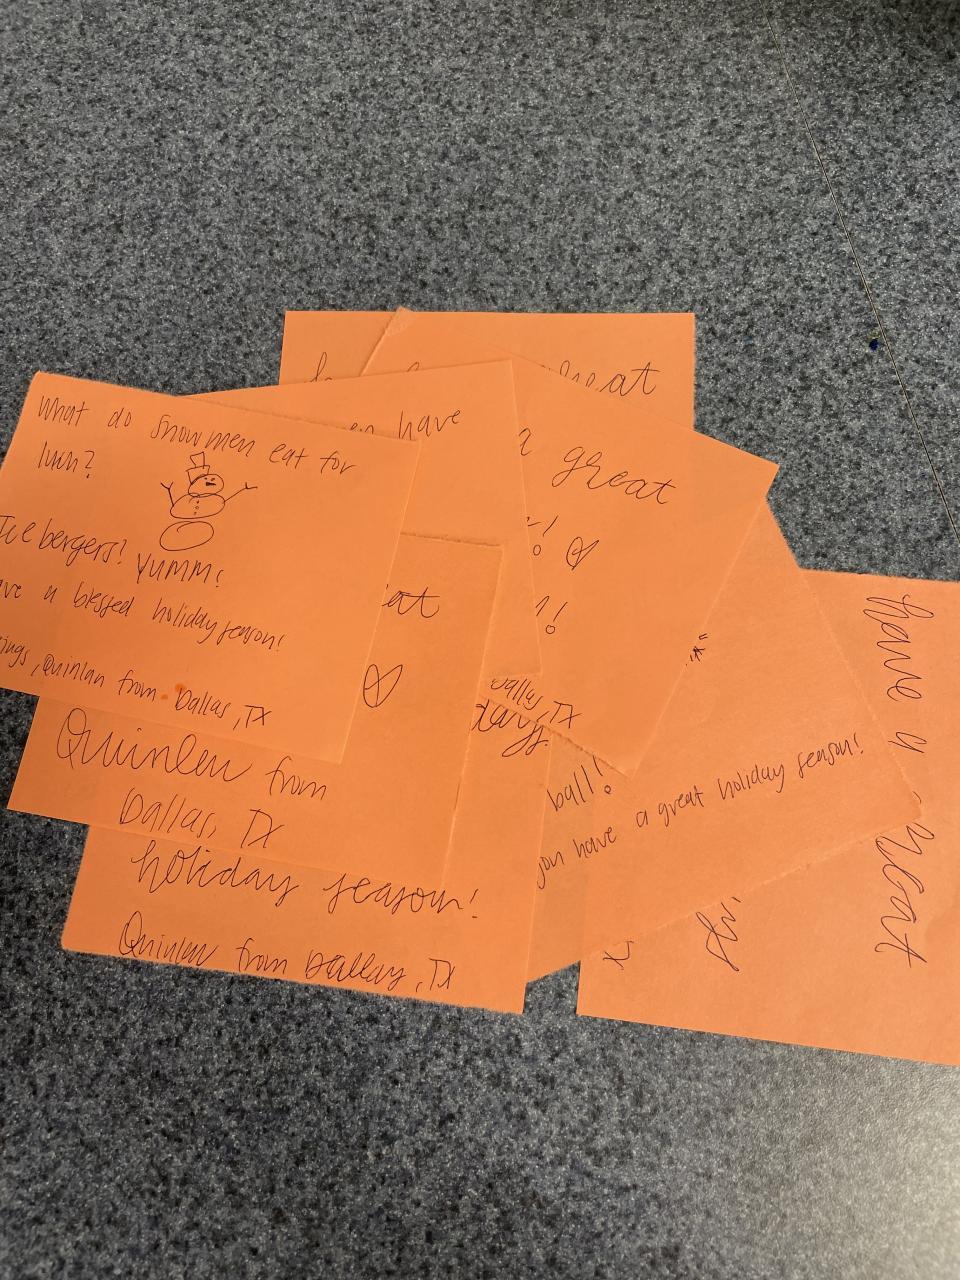 What do snowmen eat for
lunch?
Ice bergers! YUMM!
a blessed holiday season!
, Quinlan from Dallas, TX
have
great
a great
Dallas, TX
Quinlan from
Dallas, TX
holiday season!
Quinlan from Dallas, TX
ball!
you have a great holiday season!
have a
great